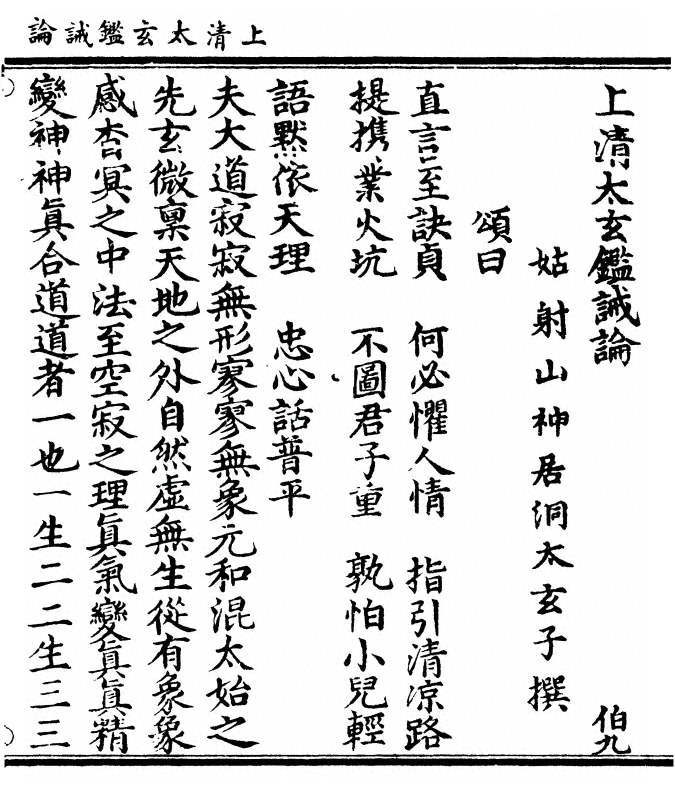 上清太玄鑑誡論
上清太玄鑑誡論 伯九
姑射山神居洞太玄子撰
頌曰
直言至訣貞 何必懼人情 指引清凉路
提攜業火坑 不圖君子重 孰怕小兒輕
語默依天理 忠心話普平
夫大道寂寂無形寥寥無象元和混太始之
先玄微稟天地之外自然虛無生從有象象
感杳冥之中法至空寂之理眞氣變眞眞精
變神神眞合道道者一也一生二二生三三